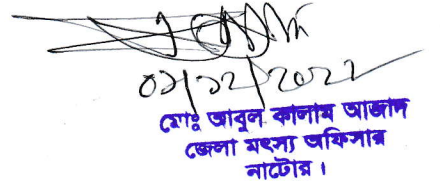 ০১/১২/২০২২
মোঃ আবুল কালাম আজাদ
জেলা মৎস্য অফিসার
নাটোর।